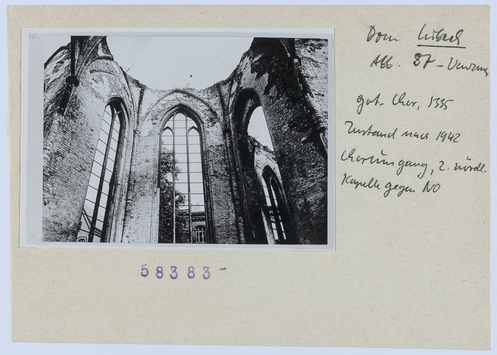 Dom Lübeck
Abb. 87 -
got. Chor, 1335
Zustand nach 1942
Chorumgang, 2. nördl.
Kapelle gegen NO
58383 -